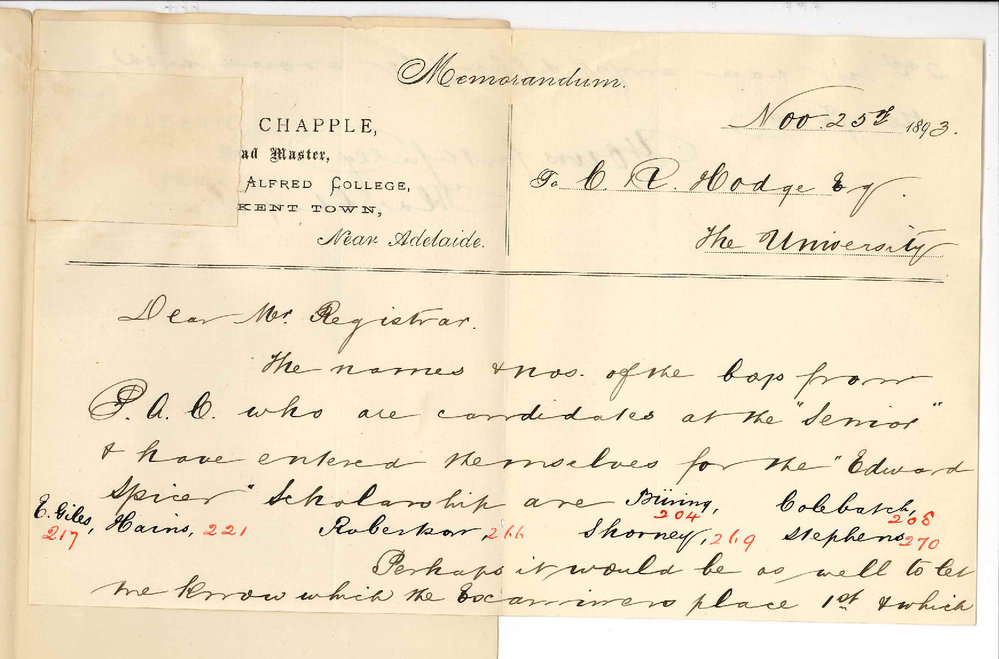 Memorandum.
CHAPPLE,
ad Master,
ALFRED COLLEGE,
KENT TOWN,
Near Adelaide.
Nov. 25th 1893.
To C. R. Hodge Esq.
The University
Dear Mr. Registrar.
The names & nos. of the boys from
P. A. C. who are candidates at the "Senior"
& have entered themselves for the "Edward
Spicer" Scholarship are Büring, 204 Colebatch, 208
E. Giles, 217 Hains, 221 Robertson, 266 Shorney, 269 Stephens 270
Perhaps it would be as well to let
me know which the Examiners place 1st & which